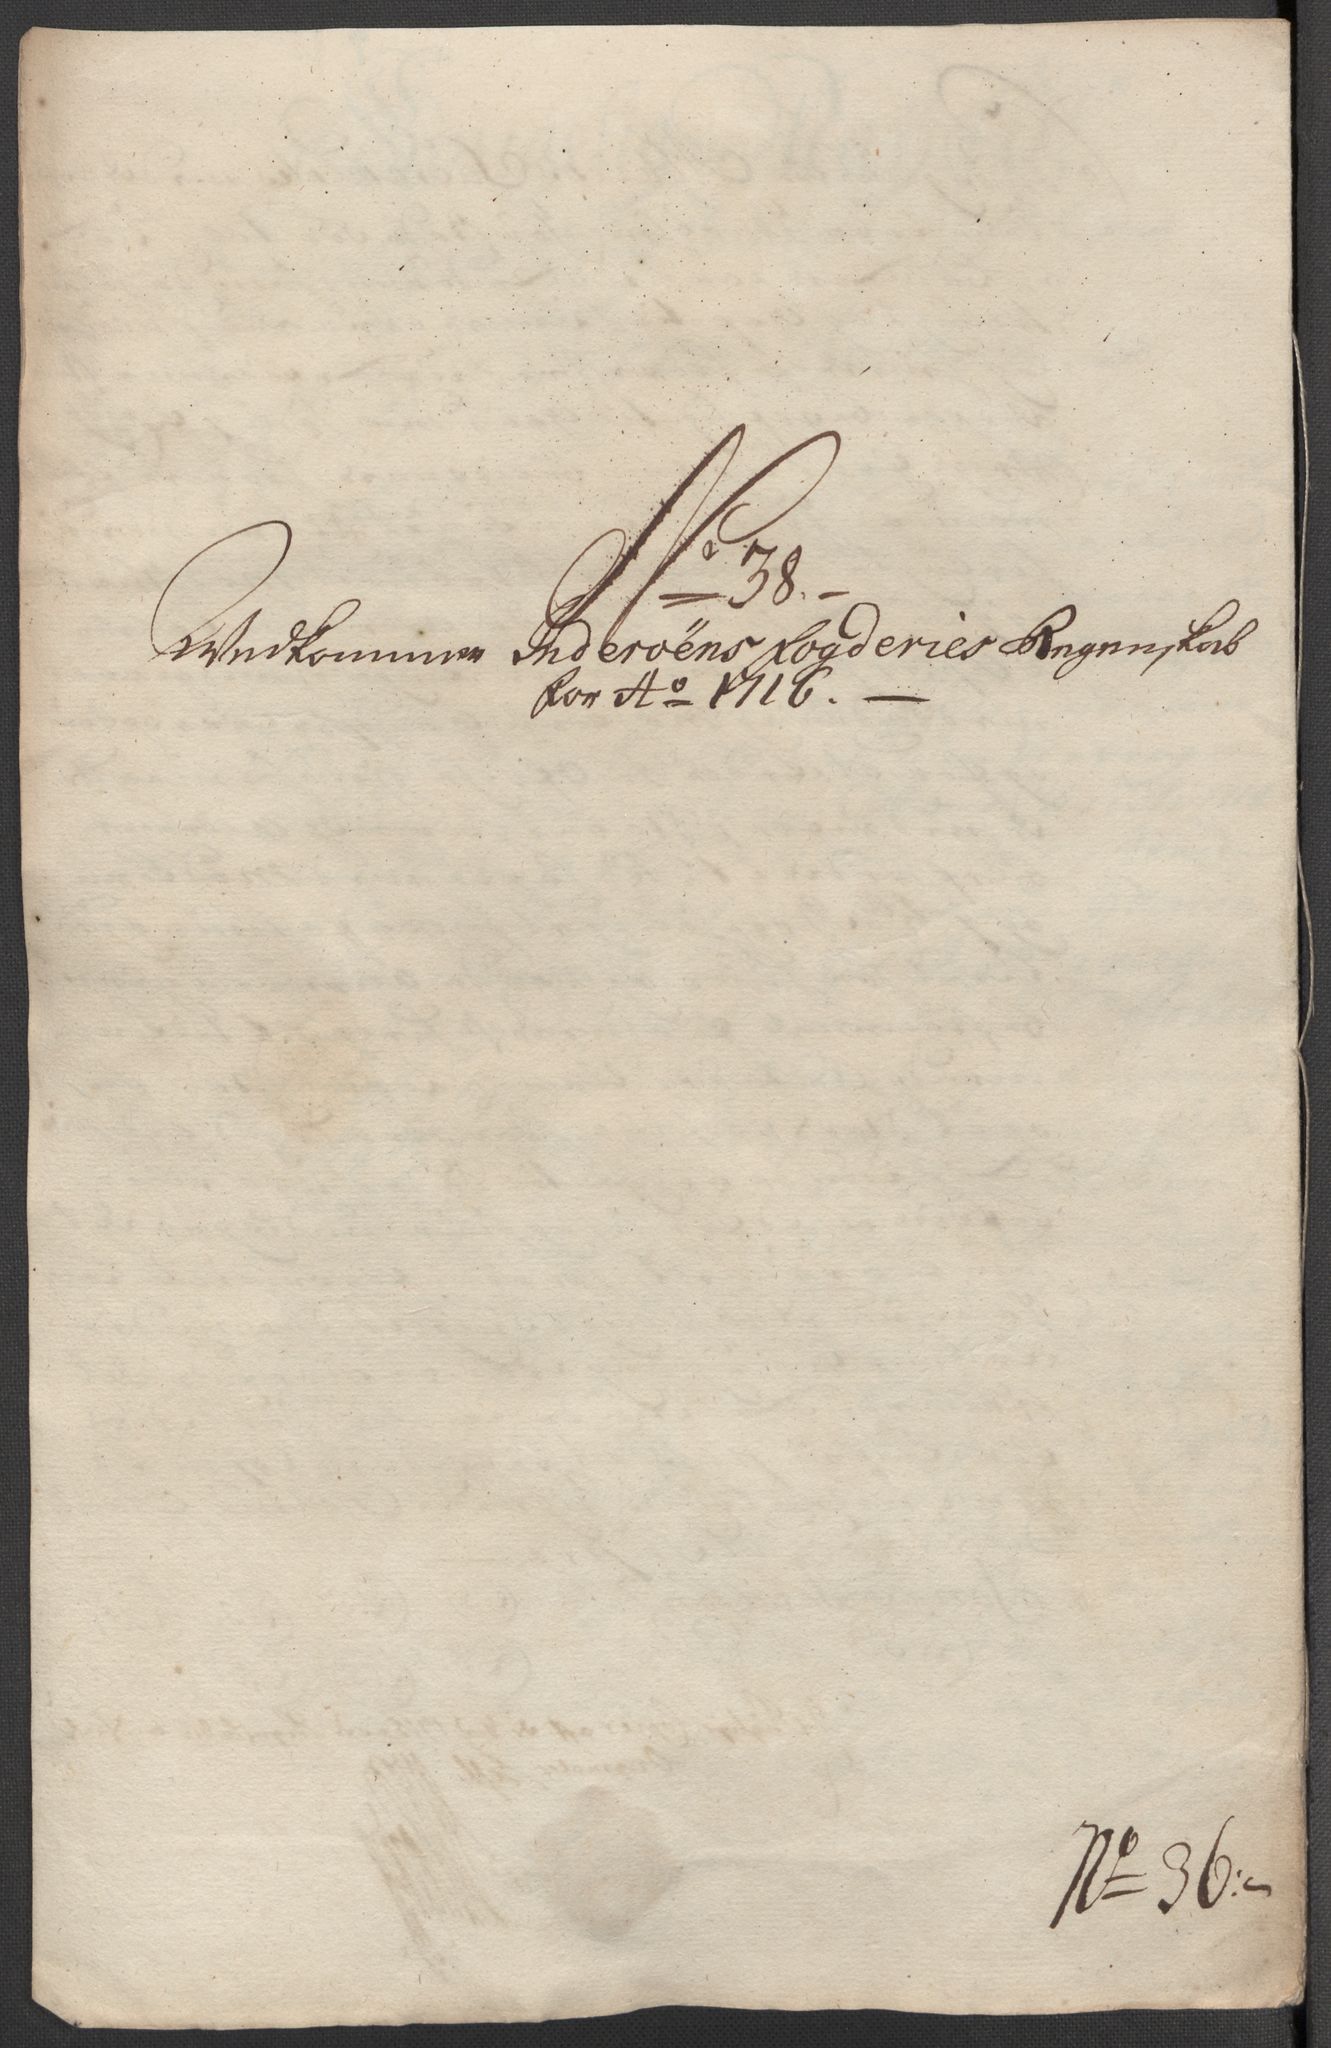 No 38.
Wedkommer Inderöens Fogderies Regenskab
for Ao 1716.
No 36: